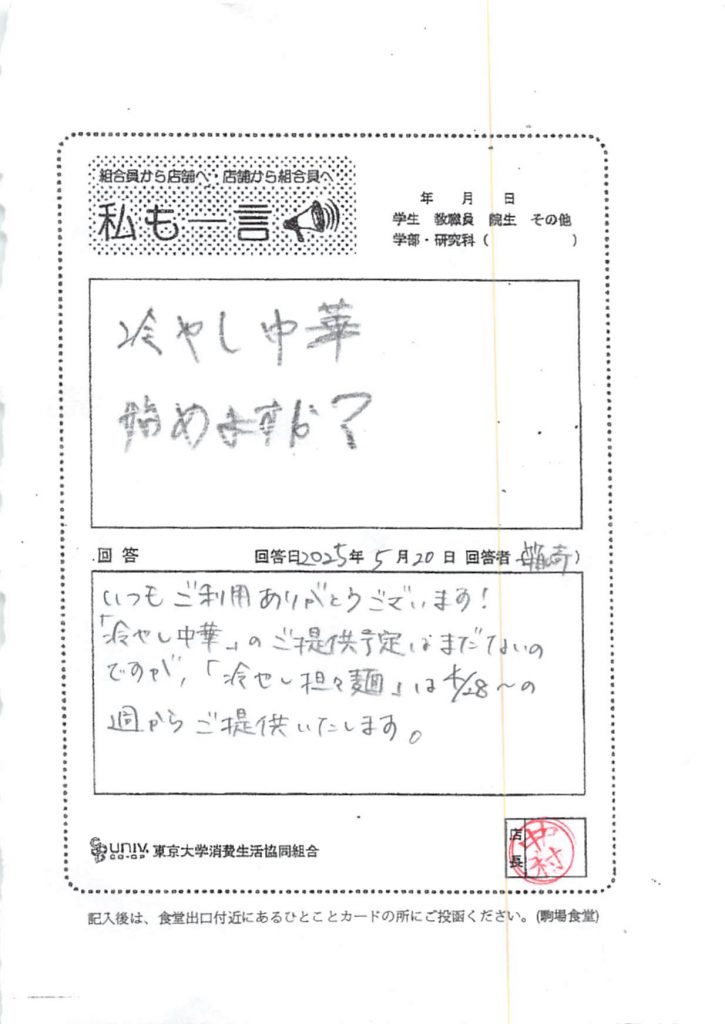 組合員から店舗へ・店舗から組合員へ
私も一言
年 月 日
学生 教職員 院生 その他
学部・研究科( )
冷やし中華
始めますか?
回答 回答日2025年5月20日 回答者 箱崎)
いつもご利用ありがとうございます!
「冷やし中華」のご提供予定はまだないの
ですが、「冷やし担々麺」は4/28~の
週からご提供いたします。
UNIV. CO-OP 東京大学消費生活協同組合
店長
中村
記入後は、食堂出口付近にあるひとことカードの所にご投函ください。(駒場食堂)